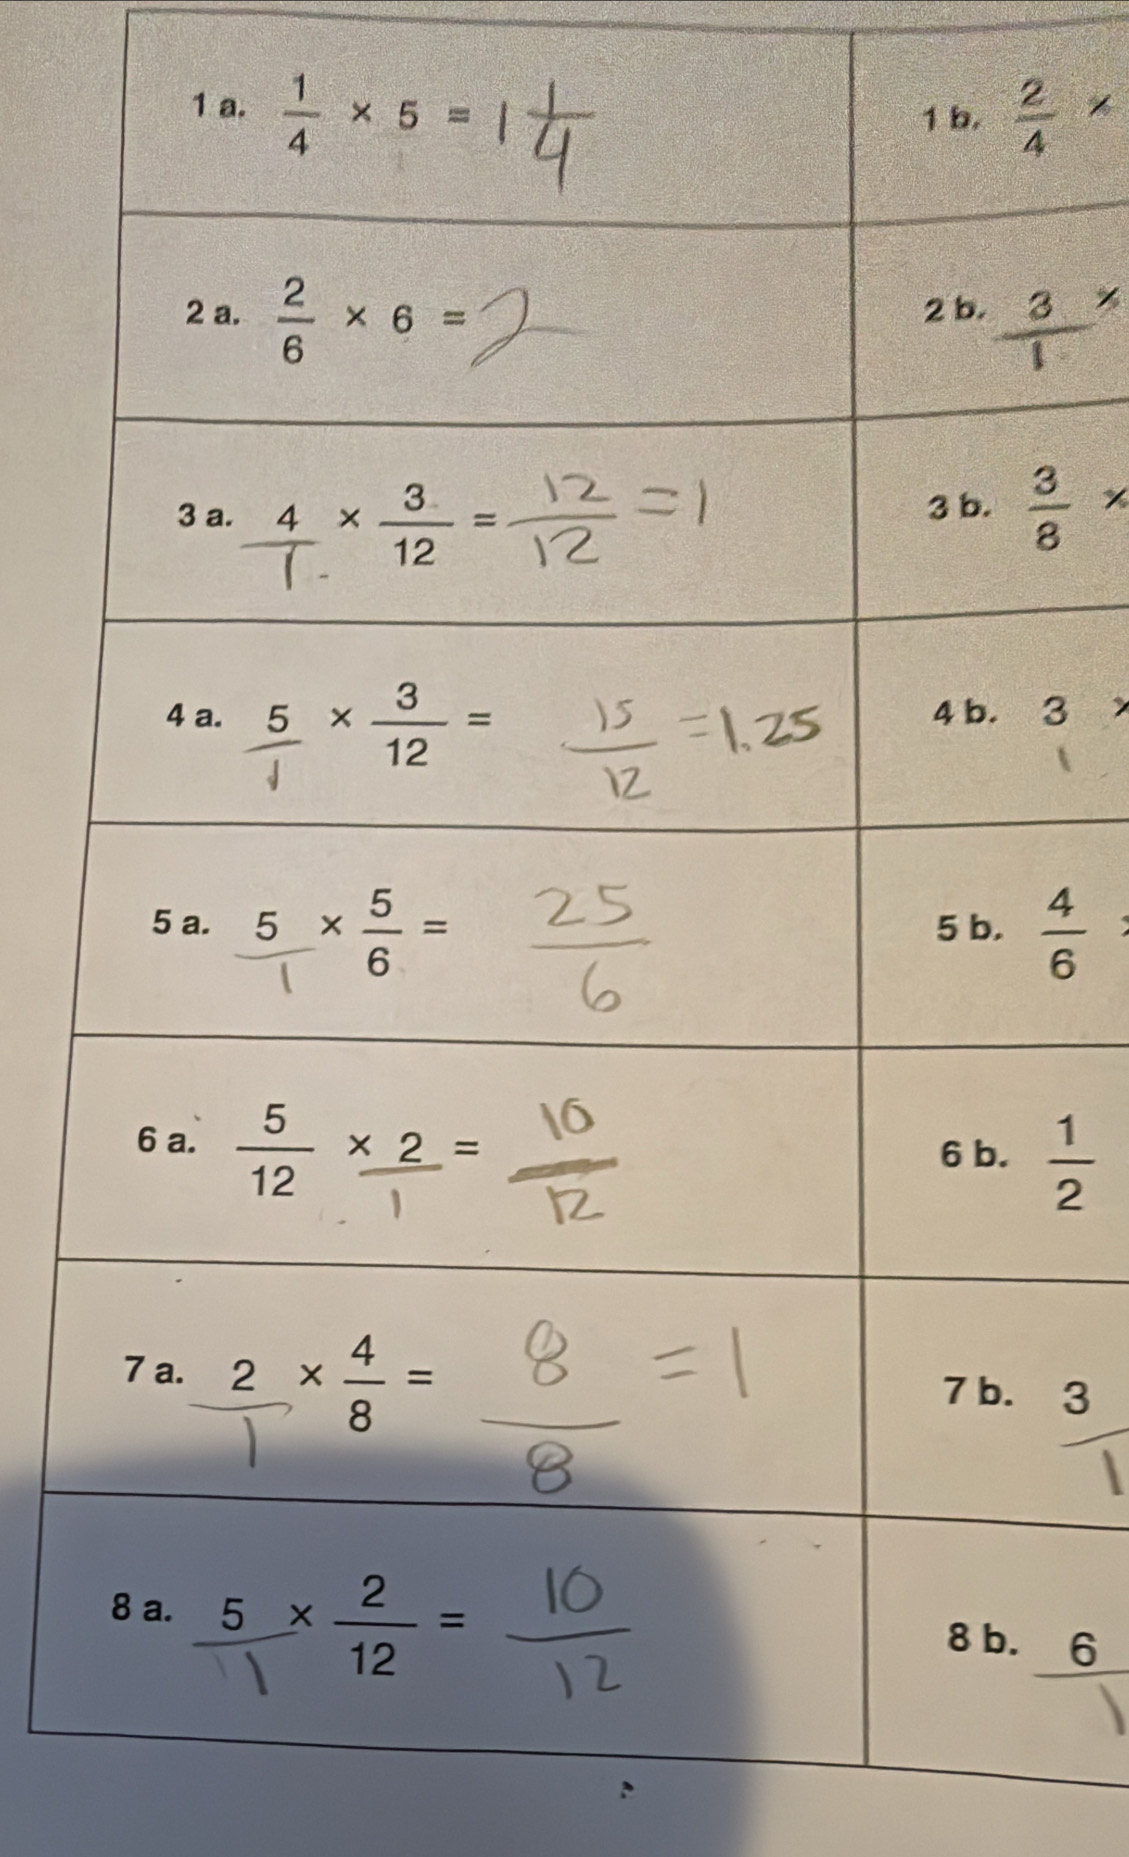 1 a. 1/4 × 5 = 1 1/4
1 b. 2/4 ×
2 a. 2/6 × 6 = 2
2 b. 3/1 ×
3 a. 4/1 × 3/12 = 12/12 = 1
3 b. 3/8 ×
4 a. 5/1 × 3/12 = 15/12 = 1.25
4 b. 3/1 ×
5 a. 5/1 × 5/6 = 25/6
5 b. 4/6
6 a. 5/12 × 2/1 = 10/12
6 b. 1/2
7 a. 2/1 × 4/8 = 8/8 = 1
7 b. 3/1
8 a. 5/1 × 2/12 = 10/12
8 b. 6/1